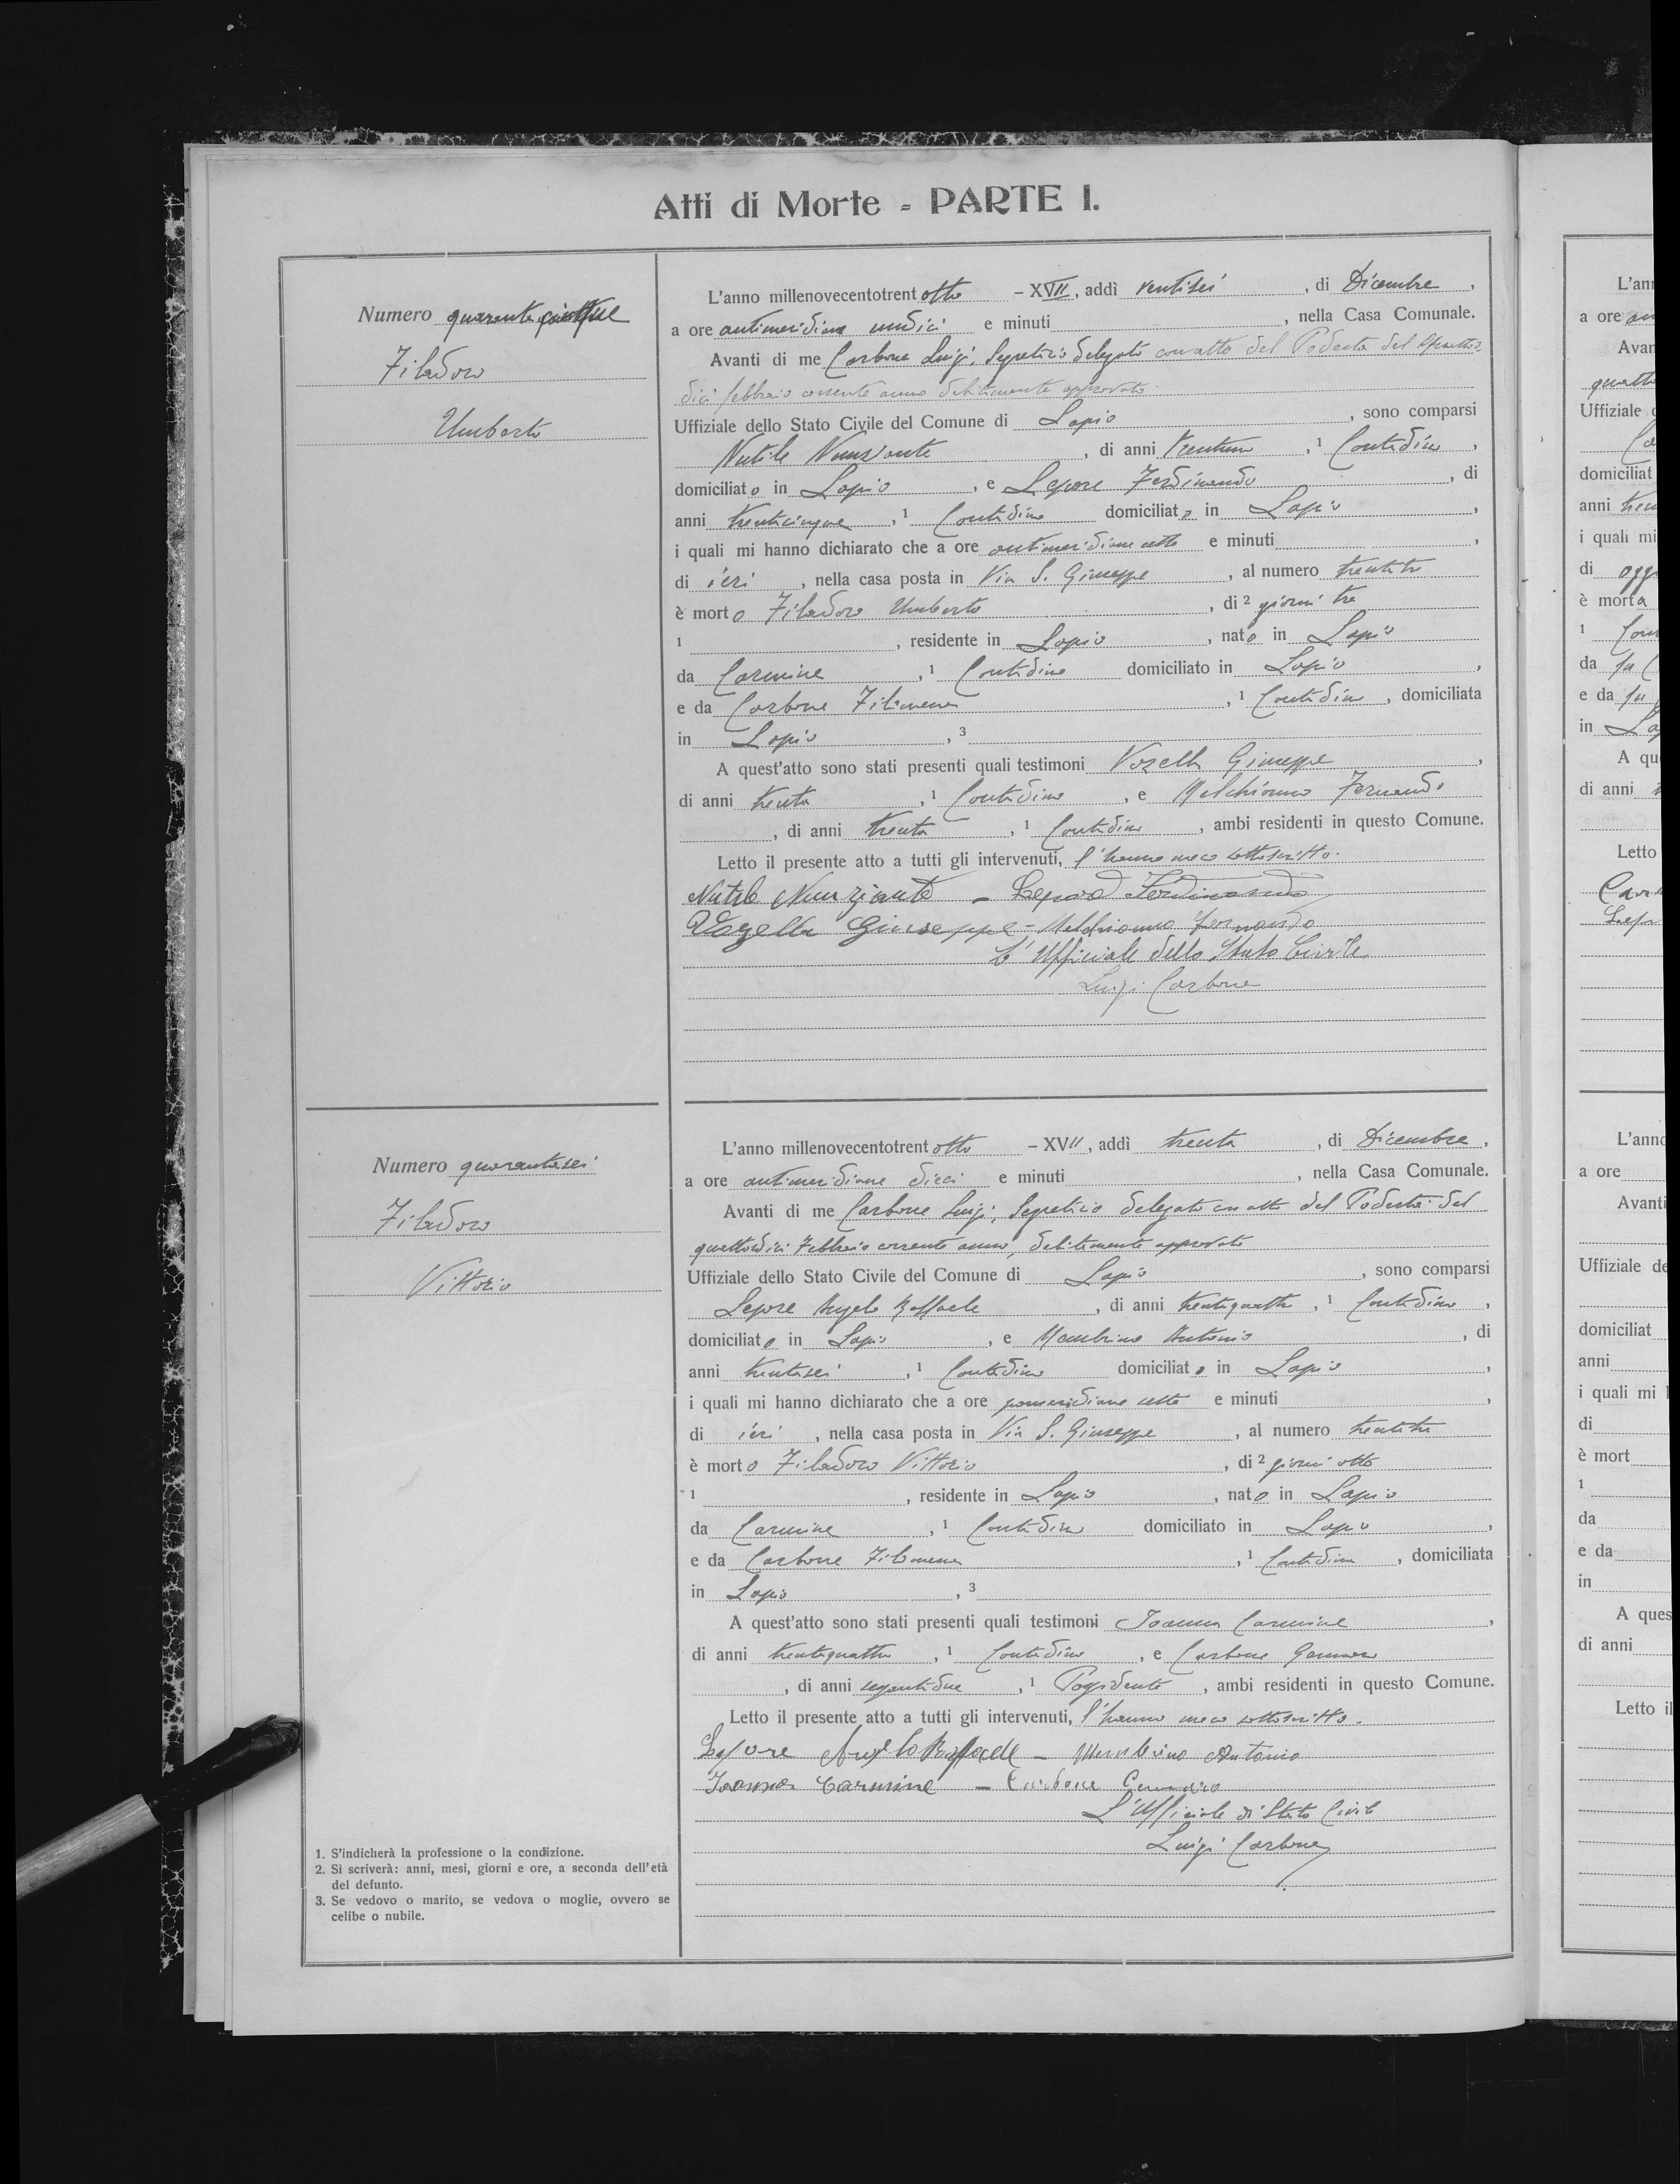 Atti di Morte - PARTE I.
Numero quarantacinque
Filadoro
Umberto
L'anno millenovecentotrentotto - XVII, addì ventisei, di Dicembre,
a ore antimeridiane undici e minuti, nella Casa Comunale.
Avanti di me Carbone Luigi, Segretario delegato con atto del Podestà del quattor-
dici febbraio corrente anno debitamente approvato
Uffiziale dello Stato Civile del Comune di Lapio, sono comparsi
Nutile Nunziante, di anni trentuno, 1 Contadino,
domiciliato in Lapio, e Lepore Ferdinando, di
anni trentacinque, 1 Contadino domiciliato in Lapio,
i quali mi hanno dichiarato che a ore antimeridiane sette e minuti,
di ieri, nella casa posta in Via S. Giuseppe, al numero trentatre
è morto Filadoro Umberto, di 2 giorni tre
1, residente in Lapio, nato in Lapio
da Carmine, 1 Contadino domiciliato in Lapio,
e da Carbone Filomena, 1 Contadina, domiciliata
in Lapio, 3
A quest'atto sono stati presenti quali testimoni Vozella Giuseppe,
di anni trenta, 1 Contadino, e Melchionno Fernando
, di anni trenta, 1 Contadino, ambi residenti in questo Comune.
Letto il presente atto a tutti gli intervenuti, l'hanno meco sottoscritto.
Nutile Nunziante - Lepore Ferdinando
Vozella Giuseppe - Melchionno Fernando
L'Ufficiale dello Stato Civile
Luigi Carbone
Numero quarantasei
Filadoro
Vittorio
L'anno millenovecentotrentotto - XVII, addì trenta, di Dicembre,
a ore antimeridiane dieci e minuti, nella Casa Comunale.
Avanti di me Carbone Luigi, Segretario delegato con atto del Podestà del
quattordici Febbraio corrente anno, debitamente approvato
Uffiziale dello Stato Civile del Comune di Lapio, sono comparsi
Lepore Angelo Raffaele, di anni trentaquattro, 1 Contadino,
domiciliato in Lapio, e Membrino Antonio, di
anni trentasei, 1 Contadino domiciliato in Lapio,
i quali mi hanno dichiarato che a ore pomeridiane sette e minuti,
di ieri, nella casa posta in Via S. Giuseppe, al numero trentatre
è morto Filadoro Vittorio, di 2 giorni otto
1, residente in Lapio, nato in Lapio
da Carmine, 1 Contadino domiciliato in Lapio,
e da Carbone Filomena, 1 Contadina, domiciliata
in Lapio, 3
A quest'atto sono stati presenti quali testimoni Joanna Carmine,
di anni trentaquattro, 1 Contadino, e Carbone Gennaro
, di anni segantidue, 1 Possidente, ambi residenti in questo Comune.
Letto il presente atto a tutti gli intervenuti, l'hanno meco sottoscritto.
Lepore Angelo Raffaele - Membrino Antonio
Joanna Carmine - Carbone Gennaro
L'Ufficiale di Stato Civile
Luigi Carbone
1. S'indicherà la professione o la condizione.
2. Si scriverà: anni, mesi, giorni e ore, a seconda dell'età
del defunto.
3. Se vedovo o marito, se vedova o moglie, ovvero se
celibe o nubile.